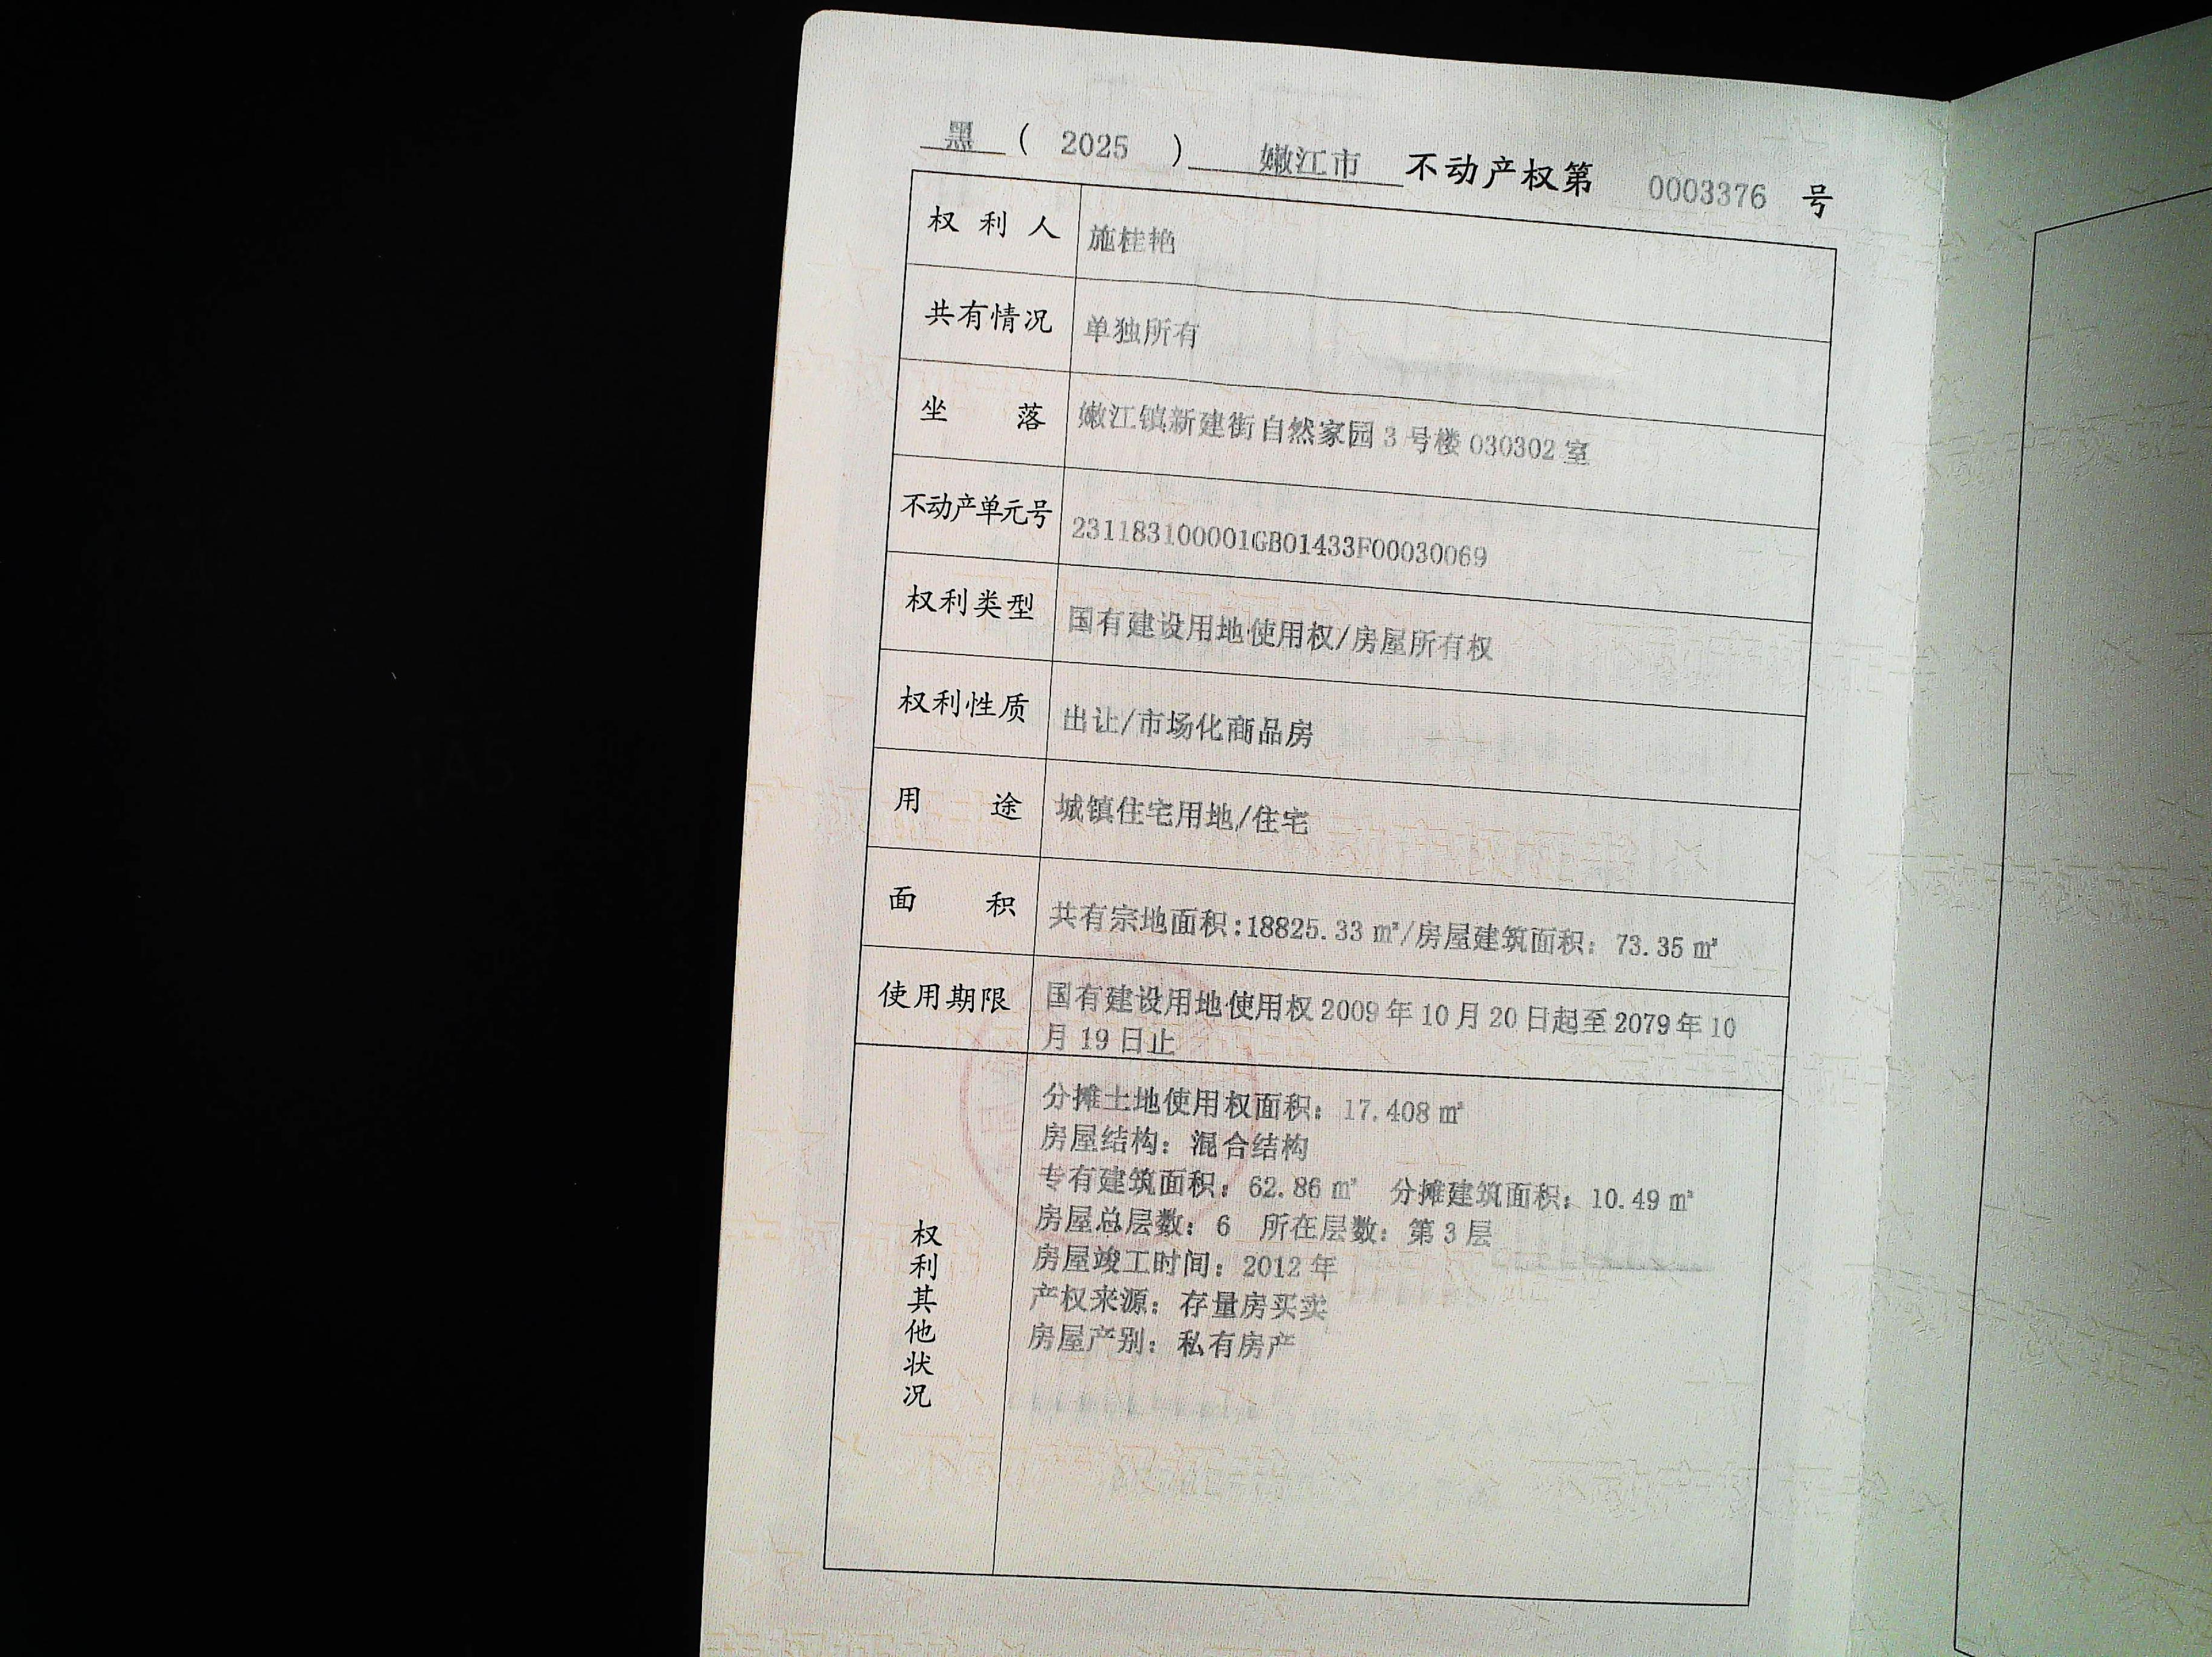 黑 ( 2025 ) 嫩江市 不动产权第 0003376 号
权利人 施桂艳
共有情况 单独所有
坐落 嫩江镇新建街自然家园3号楼030302室
不动产单元号 231183100001GB01433F00030069
权利类型 国有建设用地使用权/房屋所有权
权利性质 出让/市场化商品房
用途 城镇住宅用地/住宅
面积 共有宗地面积:18825.33㎡/房屋建筑面积:73.35㎡
使用期限 国有建设用地使用权2009年10月20日起至2079年10
月19日止
权利其他状况
分摊土地使用权面积:17.408㎡
房屋结构:混合结构
专有建筑面积:62.86㎡ 分摊建筑面积:10.49㎡
房屋总层数:6 所在层数:第3层
房屋竣工时间:2012年
产权来源:存量房买卖
房屋产别:私有房产